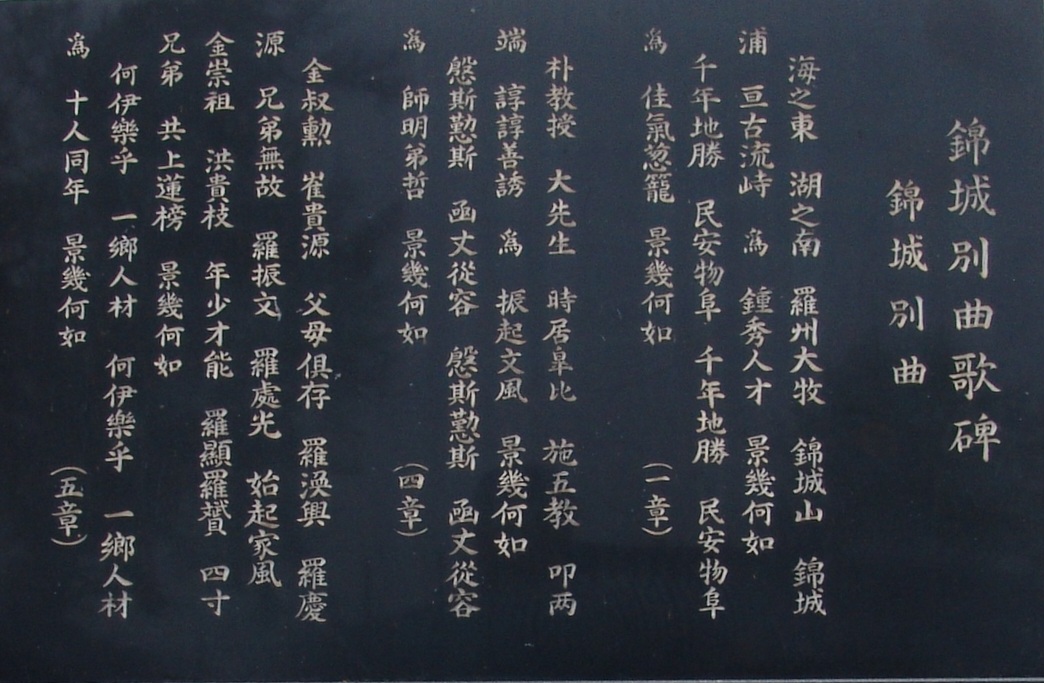 錦城別曲歌碑
錦城別曲
海之東 湖之南 羅州大牧 錦城山 錦城
浦 亘古流峙 爲 鍾秀人才 景幾何如
千年地勝 民安物阜 千年地勝 民安物阜
爲 佳氣葱籠 景幾何如 (一章)
朴教授 大先生 時居皐比 施五教 叩两
端 諄諄善誘 爲 振起文風 景幾何如
慇斯懃斯 函丈從容 慇斯懃斯 函丈從容
爲 師明弟哲 景幾何如 (四章)
金叔勳 崔貴源 父母俱存 羅渙興 羅慶
源 兄弟無故 羅振文 羅處光 始起家風
金崇祖 洪貴枝 年少才能 羅顯羅贇 四寸
兄弟 共上蓮榜 景幾何如
何伊樂乎 一鄉人材 何伊樂乎 一鄉人材
爲 十人同年 景幾何如 (五章)